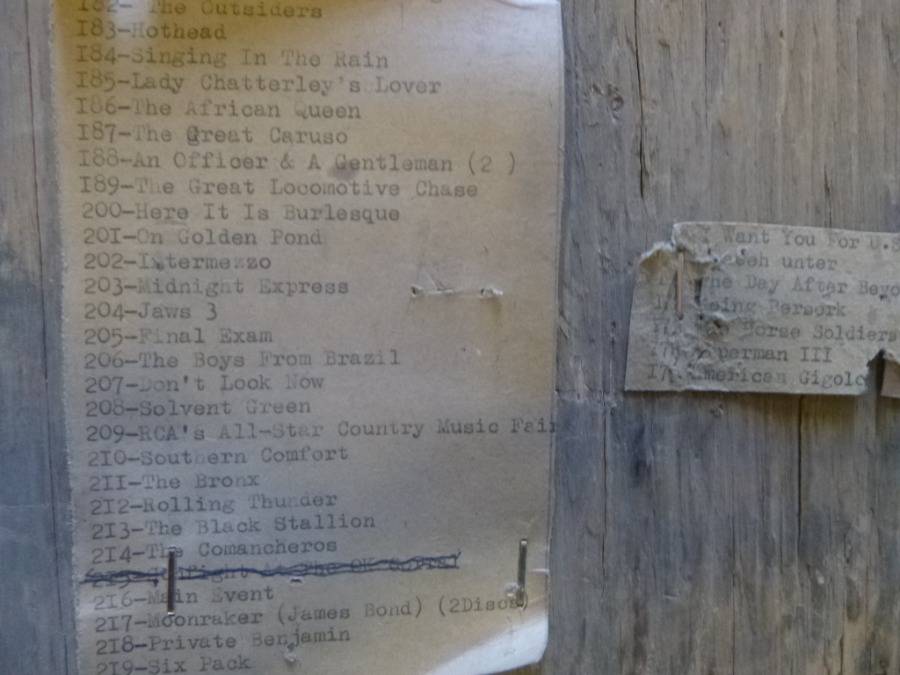 182- The Outsiders
183-Hothead
184-Singing In The Rain
185-Lady Chatterley's Lover
186-The African Queen
187-The Great Caruso
188-An Officer & A Gentleman (2 )
189-The Great Locomotive Chase
200-Here It Is Burlesque
201-On Golden Pond
202-Intermezzo
203-Midnight Express
204-Jaws 3
205-Final Exam
206-The Boys From Brazil
207-Don't Look Now
208-Solvent Green
209-RCA's All-Star Country Music Fair
210-Southern Comfort
211-The Bronx
212-Rolling Thunder
213-The Black Stallion
214-The Comancheros
215-Gunfight At The OK Corral
216-Main Event
217-Moonraker (James Bond) (2Discs)
218-Private Benjamin
219-Six Pack
I Want You For U.S
unter
The Day After Beyo
Being
Horse Soldiers
perman III
American Gigolo